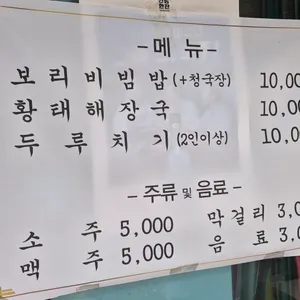 - 메 뉴 -
보리비빔밥(+청국장) 10,00
황태해장국 10,00
두루치기(2인이상) 10,0
- 주류 및 음료 -
소 주 5,000 막걸리 3,0
맥 주 5,000 음 료 3,0